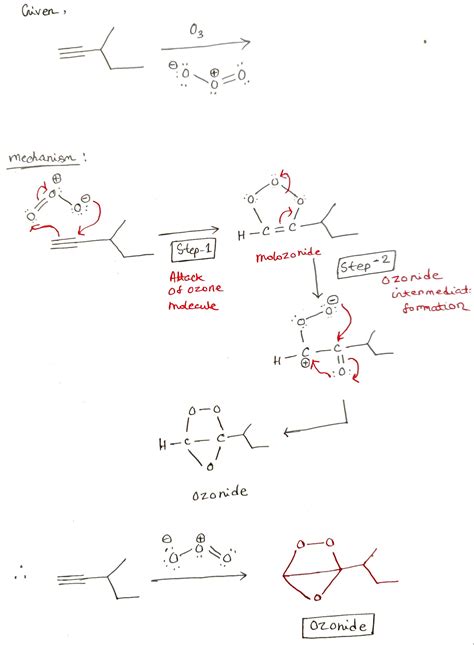 Given,
O₃
⊖ :Ö – O⊕ = Ö
mechanism:
⊕
O
⊖
O
O
Step-1
Attack
of ozone
molecule
O
O O
H – C = C
molozonide
Step-2
Ozonide
intermediat
formation
⊖
O
O
H C C
⊕ :O:
O – O
H – C C
O
Ozonide
⊖ ⊕
O – O = O
∴
O – O
O
Ozonide